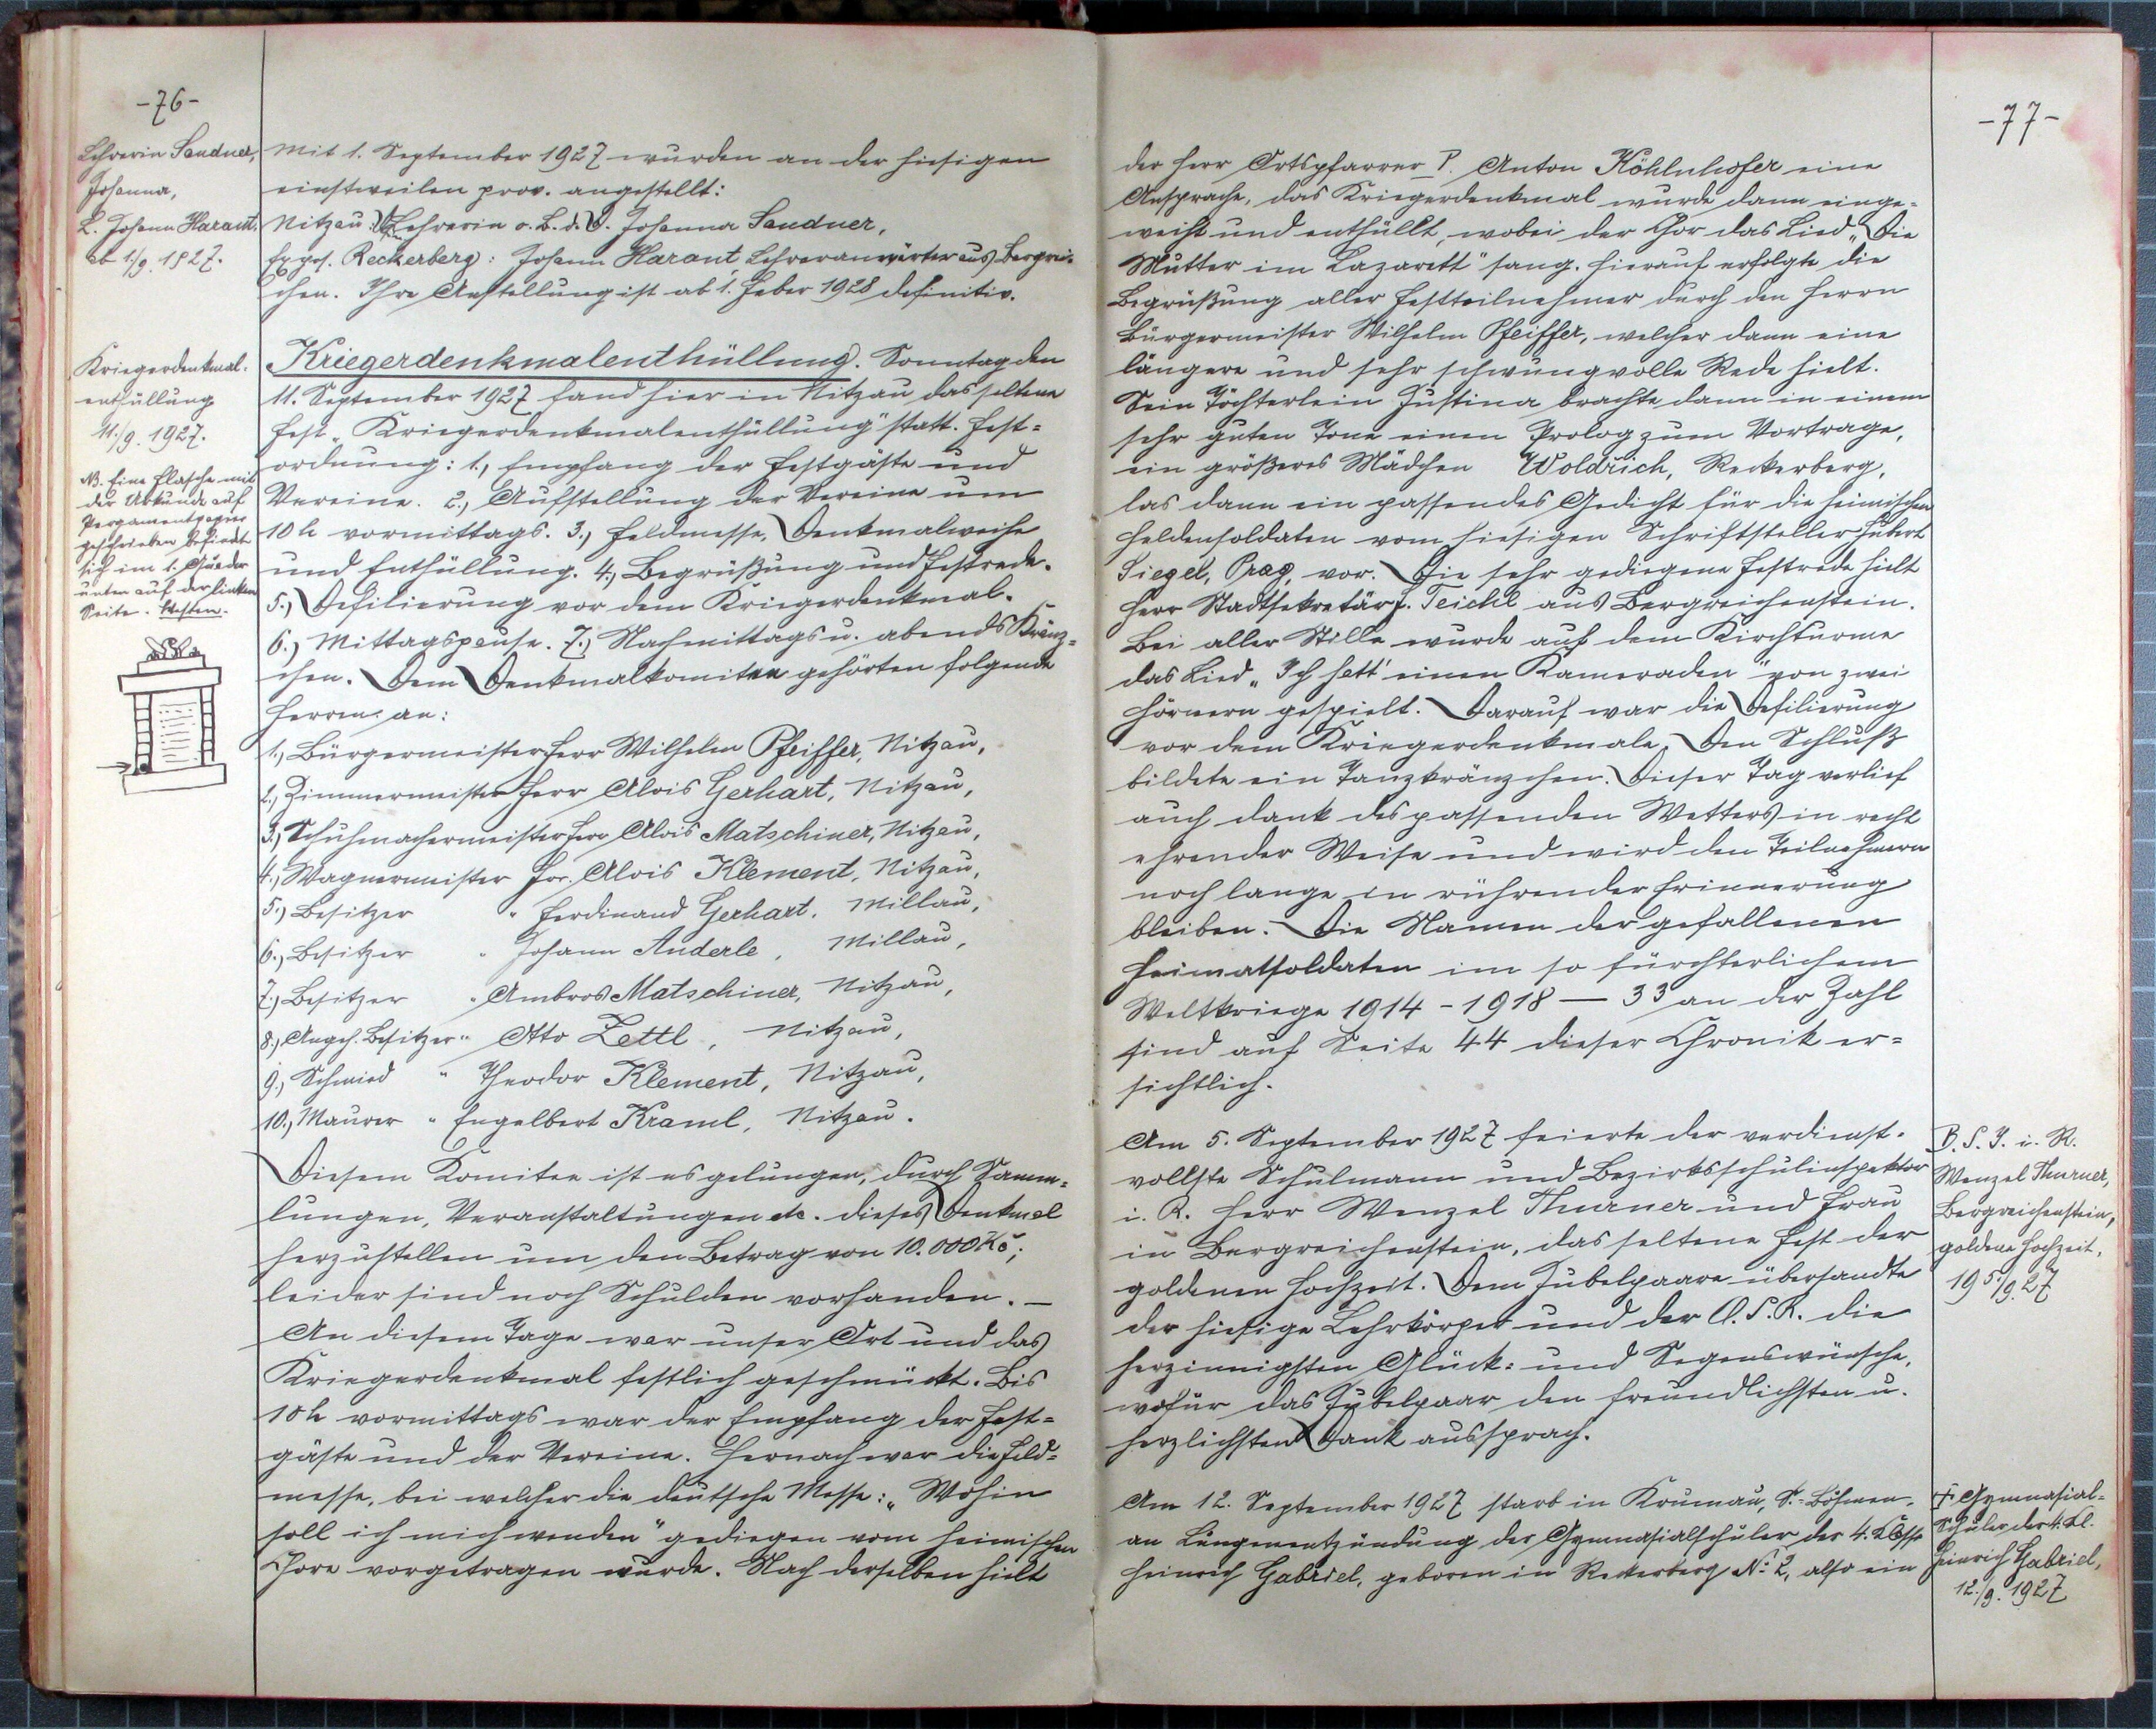 -76-
Lehrerin Sandner,
Johanna,
L. Johann Harant.
ab 1./9. 1927.
Mit 1. September 1927 wurden an der hiesigen
einstweilen prov. angestellt:
Nitzau: Lehrerin o. L. d. V. Johanna Sandner,
Expos. Reckerberg: Johann Harant Lehreranwärter aus Bergrei-
chen. Ihre Anstellung ist ab 1. Feber 1928 definitiv.
Kriegerdenkmal-
enthüllung
11./9. 1927.
NB. Eine Flasche mit
der Urkunde auf
Pergamentpapier
geschrieben befindet
sich im 1. Quader
unten auf der linken
Seite. Westen.
Kriegerdenkmalenthüllung. Sonntag den
11. September 1927 fand hier in Nitzau das seltene
Fest „Kriegerdenkmalenthüllung" statt. Fest-
ordnung: 1., Empfang der Festgäste und
Vereine. 2., Aufstellung der Vereine um
10 h vormittags. 3., Feldmesse, Denkmalweihe
und Enthüllung. 4., Begrüßung und Festrede.
5.) Defilierung vor dem Kriegerdenkmal.
6.) Mittagspause. 7.) Nachmittags u. abends Kränz-
chen. Dem Denkmalkomitee gehörten folgende
Herren an:
1., Bürgermeister Herr Wilhelm Pfeiffer, Nitzau,
2., Zimmermeister Herr Alois Gerhart, Nitzau,
3.) Schuhmachermeister Herr Alois Matschiner, Nitzau,
4., Wagnermeister Hr. Alois Klement, Nitzau,
5.) Besitzer " Ferdinand Gerhart, Millau,
6.) Besitzer " Johann Anderle, Millau,
7.) Besitzer " Ambros Matschiner, Nitzau,
8.) Angeh. Besitzer " Otto Zettl, Nitzau,
9.) Schmied " Theodor Klement, Nitzau,
10.) Maurer " Engelbert Kraml, Nitzau.
Diesem Komitee ist es gelungen, durch Samm-
lungen, Veranstaltungen etc. dieses Denkmal
herzustellen um den Betrag von 10.000 Kč;
leider sind noch Schulden vorhanden. —
An diesem Tage war unser Ort und das
Kriegerdenkmal festlich geschmückt. Bis
10 h vormittags war der Empfang der Fest-
gäste und der Vereine. Hernach war die Feld-
messe, bei welcher die deutsche Messe: „Wohin
soll ich mich wenden" gediegen vom heimischen
Chore vorgetragen wurde. Nach derselben hielt
-77-
der Herr Ortspfarrer P. Anton Köhlnhofer eine
Ansprache, das Kriegerdenkmal wurde dann einge-
weiht und enthüllt, wobei der Chor das Lied „Die
Mutter im Lazarett" sang. Hierauf erfolgte die
Begrüßung aller Festteilnehmer durch den Herrn
Bürgermeister Wilhelm Pfeiffer, welcher dann eine
längere und sehr schwungvolle Rede hielt.
Sein Töchterlein Justina brachte dann in einem
sehr guten Tone einen Prolog zum Vortrage,
ein größeres Mädchen Woldřich, Reckerberg,
las dann ein passendes Gedicht für die heimischen
Heldensoldaten vom hiesigen Schriftsteller Hubert
Siegel, Prag, vor. Die sehr gediegene Festrede hielt
Herr Stadtsekretär F. Teichl aus Bergreichenstein.
Bei aller Stille wurde auf dem Kirchturme
das Lied „Ich hatt' einen Kameraden" von zwei
Hörnern gespielt. Darauf war die Defilierung
vor dem Kriegerdenkmale. Den Schluß
bildete ein Tanzkränzchen. Dieser Tag verlief
auch dank des passenden Wetters in recht
ehrender Weise und wird den Teilnehmern
noch lange in rührender Erinnerung
bleiben. Die Namen der gefallenen
Heimatsoldaten im so fürchterlichem
Weltkriege 1914 - 1918 — 33 an der Zahl
sind auf Seite 44 dieser Chronik er-
sichtlich.
Am 5. September 1927 feierte der verdienst-
vollste Schulmann und Bezirksschulinspektor
i. R. Herr Wenzel Thurner und Frau
in Bergreichenstein, das seltene Fest der
goldenen Hochzeit. Dem Jubelpaare übersandte
der hiesige Lehrkörper und der O. S. R. die
herzinnigsten Glück- und Segenswünsche,
wofür das Jubelpaar den freundlichsten u.
herzlichsten Dank aussprach.
B. S. I. i. R.
Wenzel Thurner,
Bergreichenstein,
goldene Hochzeit,
19 5./9. 27
Am 12. September 1927 starb in Krumau, S.-Böhmen,
an Lungenentzündung der Gymnasialschüler der 4. Klasse
Heinrich Gabriel, geboren in Reckerberg No 2, also ein
† Gymnasial-
Schüler der 4. Kl.
Heinrich Gabriel,
12./9. 1927